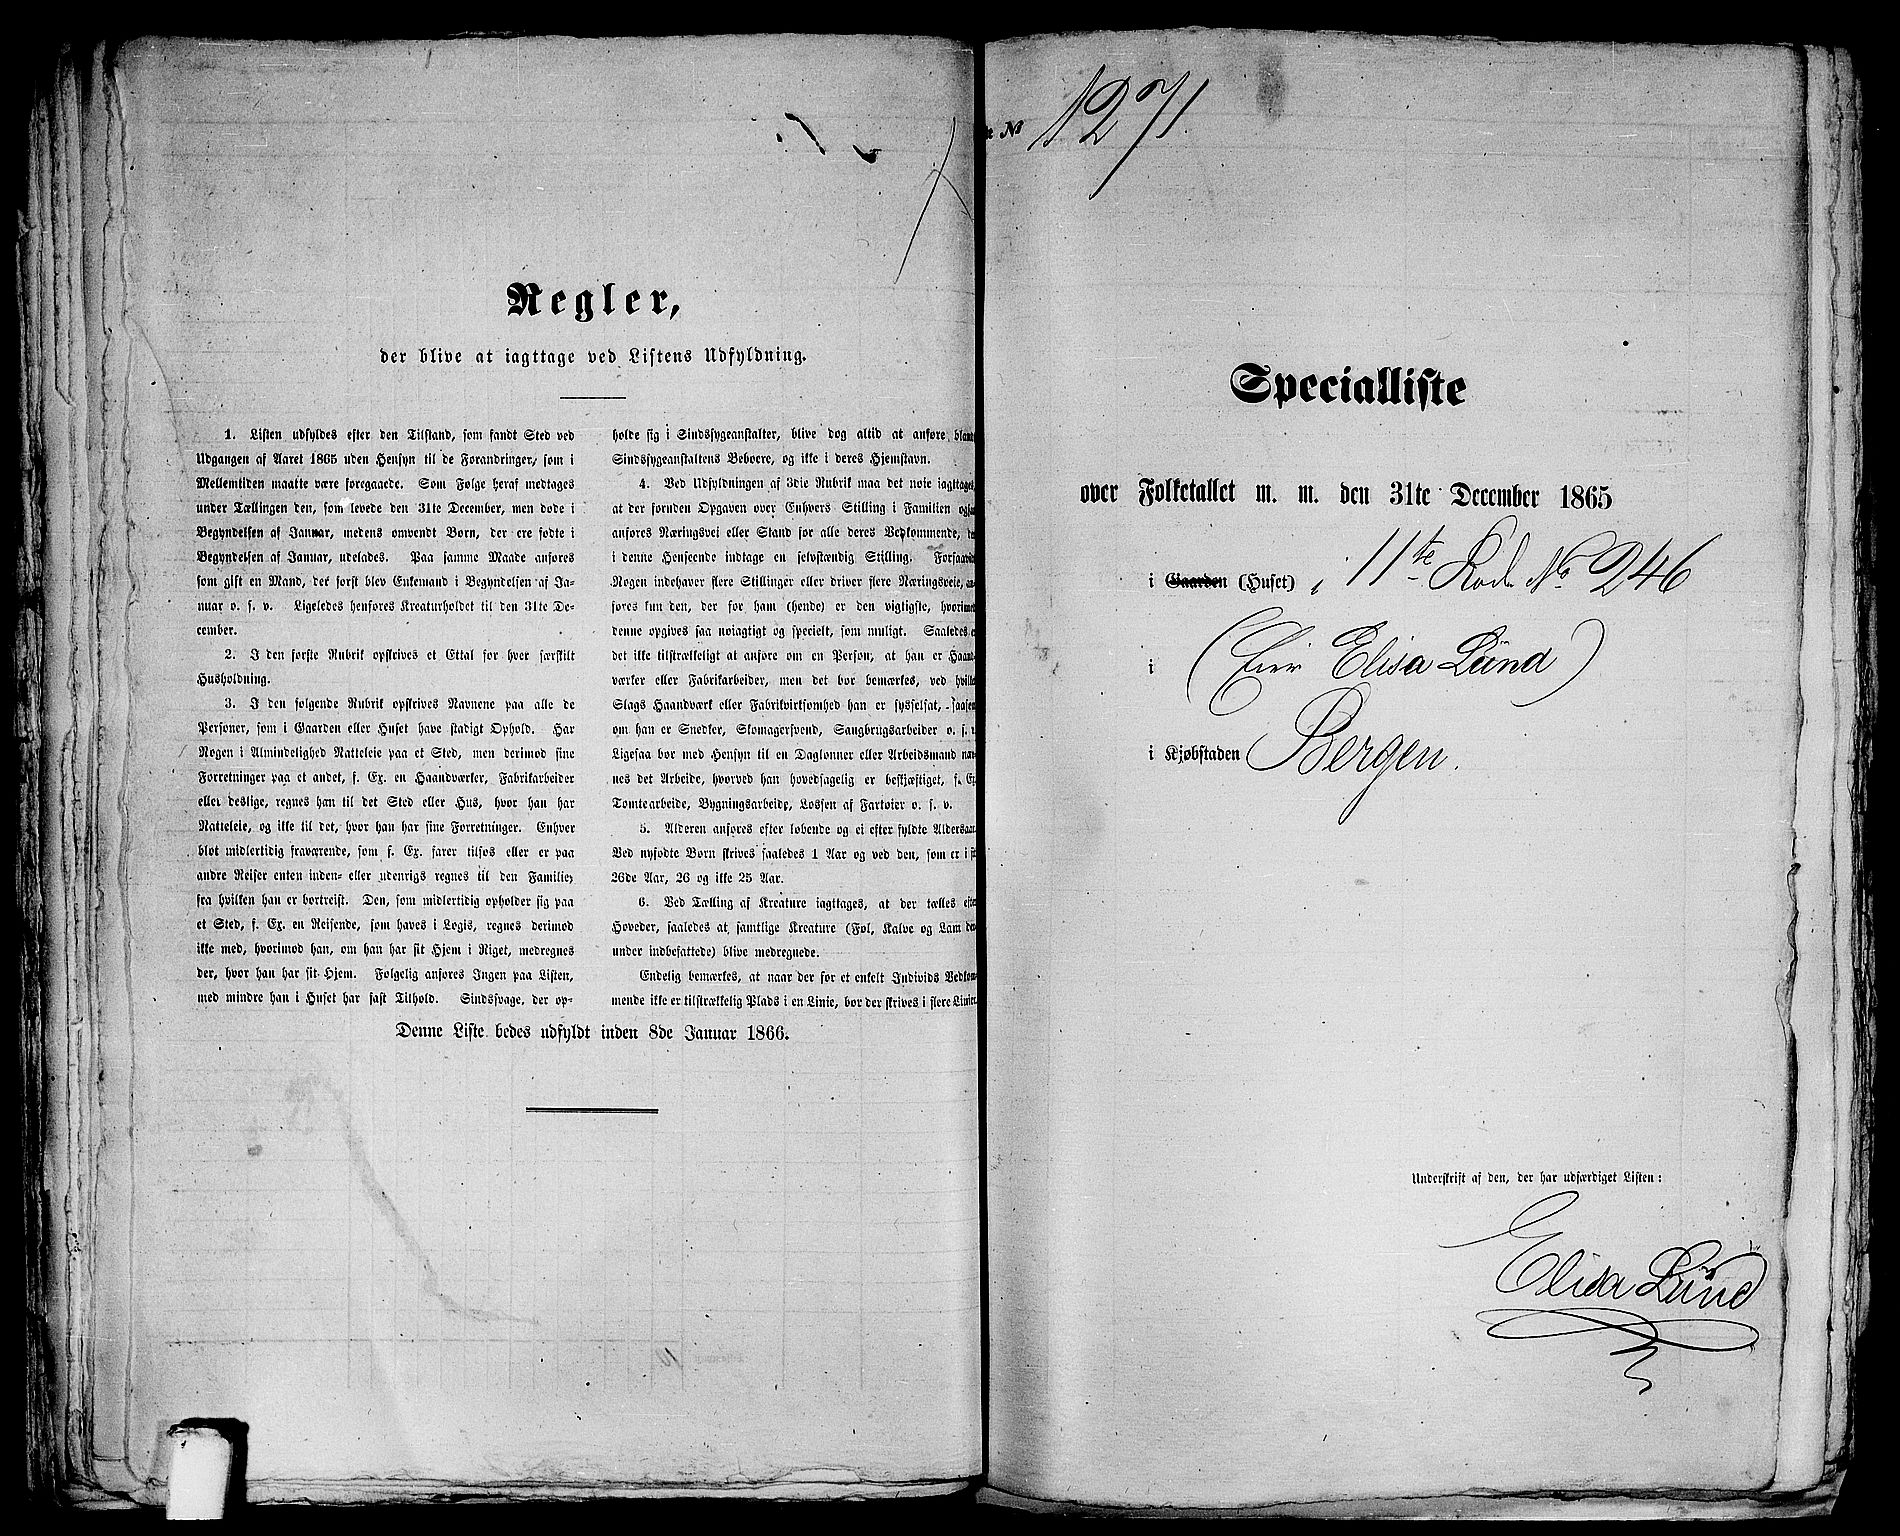 Regler,
der blive at iagttage ved Listens Udfyldning.
1. Listen udfyldes efter den Tilstand, som fandt Sted ved
Udgangen af Aaret 1865 uden Hensyn til de Forandringer, som i
Mellemtiden maatte være foregaaede. Som Følge heraf medtages
under Tællingen den, som levede den 31te December, men døde i
Begyndelsen af Januar, medens omvendt Børn, der ere fødte i
Begyndelsen af Januar, udelades. Paa samme Maade anføres
som gift en Mand, der først blev Enkemand i Begyndelsen af Ja-
nuar o. s. v. Ligeledes henføres Kreaturholdet til den 31te De-
cember.
2. I den første Rubrik opskrives et Ettal for hver særskilt
Husholdning.
3. I den følgende Rubrik opskrives Navnene paa alle de
Personer, som i Gaarden eller Huset have stadigt Ophold. Har
Nogen i Almindelighed Natteleie paa et Sted, men derimod sine
Forretninger paa et andet, f. Ex. en Haandværker, Fabrikarbeider
eller deslige, regnes han til det Sted eller Hus, hvor han har
Natteleie, og ikke til det, hvor han har sine Forretninger. Enhver
blot midlertidig fraværende, som f. Ex. farer tilsøs eller er paa
andre Reiser enten inden- eller udenrigs regnes til den Familie,
fra hvilken han er bortreist. Den, som midlertidig opholder sig paa
et Sted, f. Ex. en Reisende, som haves i Logis, regnes derimod
ikke med, hvorimod han, om han har sit Hjem i Riget, medregnes
der, hvor han har sit Hjem. Følgelig anføres Ingen paa Listen,
med mindre han i Huset har fast Tilhold. Sindssvage, der op-
holde sig i Sindssygeanstalter, blive dog altid at anføre blandt
Sindssygeanstaltens Beboere, og ikke i deres Hjemstavn.
4. Ved Udfyldningen af 3die Rubrik maa det nøie iagttages,
at der foruden Opgaven over Enhvers Stilling i Familien også
anføres Næringsvei eller Stand for alle deres Vedkommende, der
i denne Henseende indtage en selvstændig Stilling. Forsaavidt
Nogen indehaver flere Stillinger eller driver flere Næringsveie, an-
føres kun den, der for ham (hende) er den vigtigste, hvorimod
denne opgives saa nøiagtigt og specielt, som muligt. Saaledes er
det ikke tilstrækkeligt at anføre om en Person, at han er Haand-
værker eller Fabrikarbeider, men det bør bemærkes, ved hvilket
Slags Haandværk eller Fabrikvirksomhed han er sysselsat, saasom
om han er Snedker, Skomagersvend, Sangbrugsarbeider o. s. v.
Ligesaa bør med Hensyn til en Daglønner eller Arbeidsmand næv-
nes det Arbeide, hvorved han hovedsagelig er beskjæftiget, f. Ex.
Tomtearbeide, Bygningsarbeide, Lossen af Fartøier o. s. v.
5. Alderen anføres efter løbende og ei efter fyldte Aldersaar.
Ved nyfødte Børn skrives saaledes 1 Aar og ved den, som er i sit
26de Aar, 26 og ikke 25 Aar.
6. Ved Tælling af Kreature iagttages, at der tælles efter
Hoveder, saaledes at samtlige Kreature (Føl, Kalve og Lam der-
under indbefattede) blive medregnede.
Endelig bemærkes, at naar der for et enkelt Individs Vedkom-
mende ikke er tilstrækkelig Plads i en Linie, bør der skrives i flere Linier.
Denne Liste bedes udfyldt inden 8de Januar 1866.
№ 1271.
Specialliste
over Folketallet m. m. den 31te December 1865
i Gaarden (Huset) i 11te Rode No 246
i (Eier Elisa Lund)
i Kjøbstaden Bergen.
Underskrift af den, der har udfærdiget Listen:
Elisa Lund